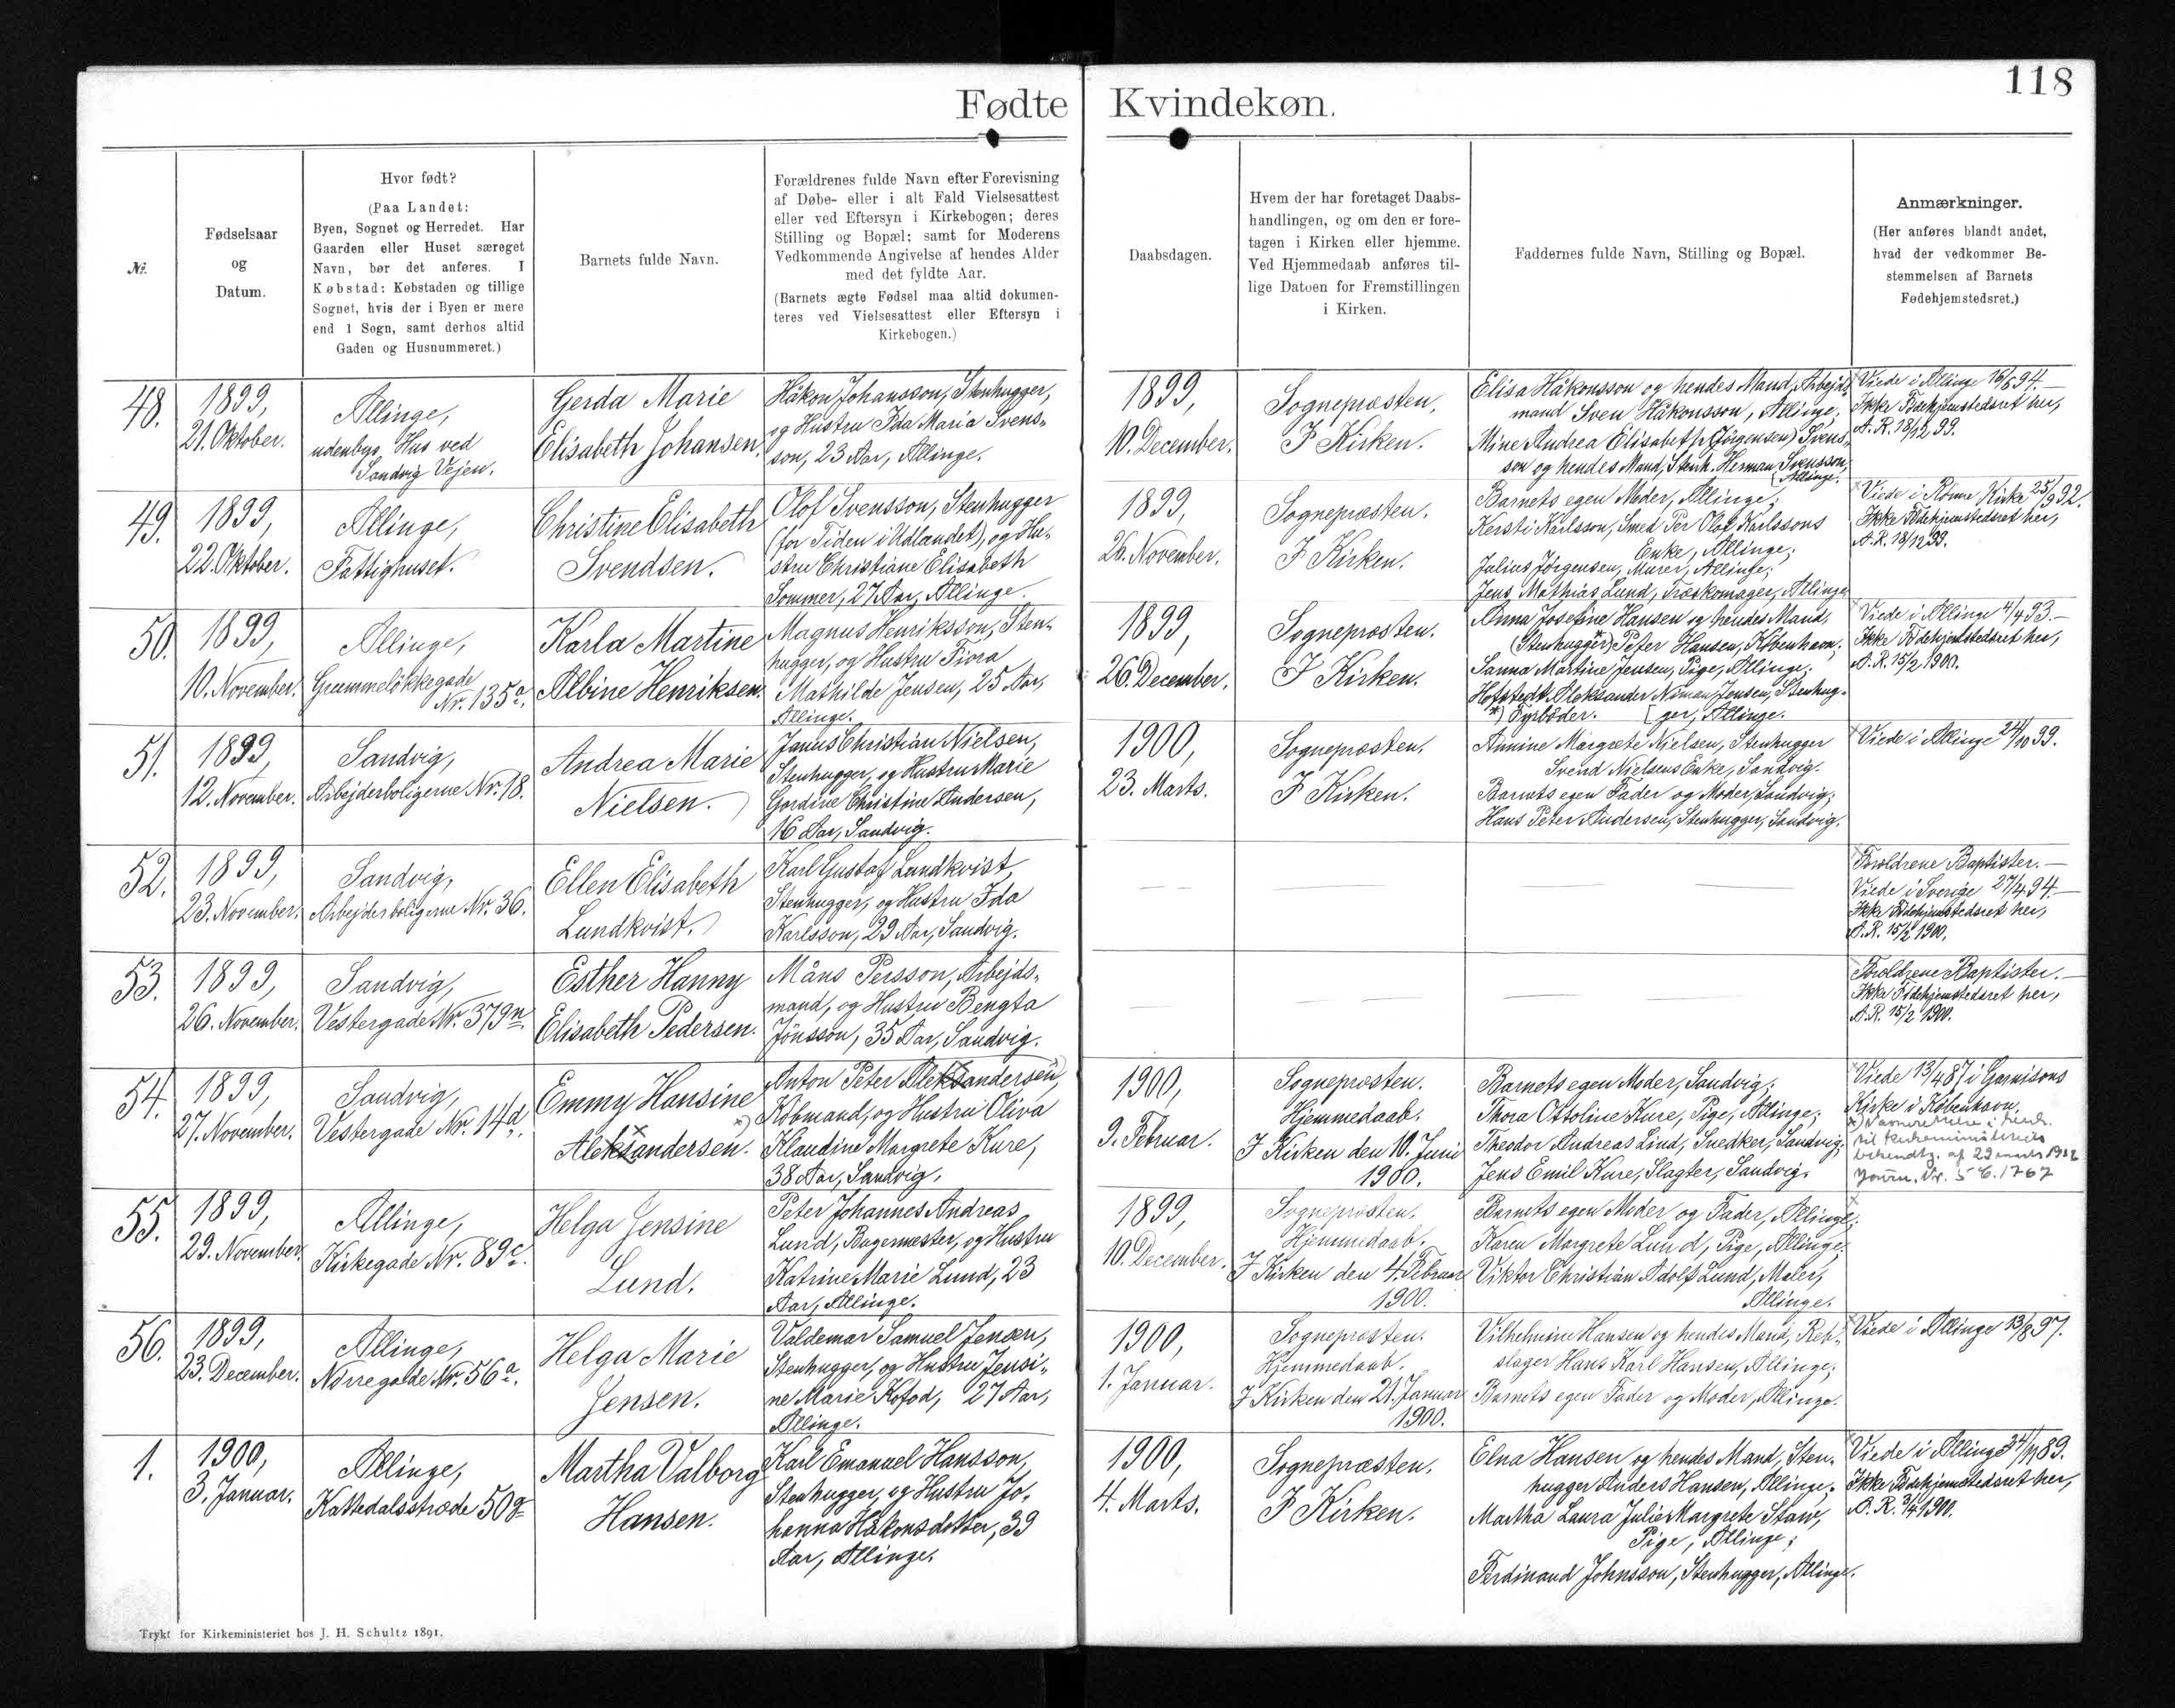 118
Fødte Kvindekøn.
№.
Fødselsaar
og
Datum.
Hvor født?
(Paa Landet:
Byen, Sognet og Herredet. Har
Gaarden eller Huset særeget
Navn, bør det anføres. I
Købstad: Købstaden og tillige
Sognet, hvis der i Byen er mere
end 1 Sogn, samt derhos altid
Gaden og Husnummeret.)
Barnets fulde Navn.
Forældrenes fulde Navn efter Forevisning
af Døbe- eller i alt Fald Vielsesattest
eller ved Eftersyn i Kirkebogen; deres
Stilling og Bopæl; samt for Moderens
Vedkommende Angivelse af hendes Alder
med det fyldte Aar.
(Barnets ægte Fødsel maa altid dokumen-
teres ved Vielsesattest eller Eftersyn i
Kirkebogen.)
Daabsdagen.
Hvem der har foretaget Daabs-
handlingen, og om den er fore-
tagen i Kirken eller hjemme.
Ved Hjemmedaab anføres til-
lige Datoen for Fremstillingen
i Kirken.
Faddernes fulde Navn, Stilling og Bopæl.
Anmærkninger.
(Her anføres blandt andet,
hvad der vedkommer Be-
stemmelsen af Barnets
Fødehjemstedsret.)
48.
1899,
21. Oktober.
Allinge,
udenbys Hus ved
Sandvig Vejen.
Gerda Marie
Elisabeth Johansen.
Håkon Johansson, Stenhugger,
og Hustru Ida Maria Svens-
son, 23 Aar, Allinge.
1899,
10. December.
Sognepræsten.
I Kirken.
Elisa Håkonsson og hendes Mand, Arbejds-
mand Sven Håkonsson, Allinge;
Mine Andrea Elisabeth (Jörgensen) Svens-
son og hendes Mand, Stenh. Herman Svensson,
Allinge.
Viede i Allinge 16/6 94.—
Ikke Fødehjemstedsret her,
A. R. 18/12 99.
49.
1899,
22. Oktober.
Allinge,
Fattighuset.
Christine Elisabeth
Svendsen.
Olof Svensson, Stenhugger
(for Tiden i Udlandet), og Hu-
stru Christiane Elisabeth
Sommer, 27 Aar, Allinge.
1899,
26. November.
Sognepræsten.
I Kirken.
Barnets egen Moder, Allinge;
Kersti Karlsson, Smed Per Olof Karlssons
Enke, Allinge;
Julius Jörgensen, Murer, Allinge;
Jens Mathias Lund, Træskomager, Allinge.
Viede i Rönne Kirke 25/9 92.
Ikke Fødehjemstedsret her,
A. R. 18/12 99.
50.
1899,
10. November.
Allinge,
Grummelökkegade
Nr. 135 a.
Karla Martine
Albine Henriksen.
Magnus Henriksson, Sten-
hugger, og Hustru Fiora
Mathilde Jensen, 25 Aar,
Allinge.
1899,
26. December.
Sognepræsten.
I Kirken.
Anna Josefine Hansen og hendes Mand,
(Stenhugger*) Peter Hansen, København;
Sanna Martine Jensen, Pige, Allinge;
Hofstedt Aleksander Noman Jensen, Stenhug-
*) Fyrböder. [ger, Allinge.
Viede i Allinge 4/4 93.—
Ikke Fødehjemstedsret her,
A. R. 15/2 1900.
51.
1899,
12. November.
Sandvig,
Arbejderboligerne Nr. 18.
Andrea Marie
Nielsen.
Janus Christian Nielsen,
Stenhugger, og Hustru Marie
Gordine Christine Andersen,
16 Aar, Sandvig.
1900,
23. Marts.
Sognepræsten.
I Kirken.
Annine Margrete Nielsen, Stenhugger
Svend Nielsens Enke, Sandvig.
Barnets egen Fader og Moder, Sandvig;
Hans Peter Andersen, Stenhugger, Sandvig.
Viede i Allinge 24/10 99.
52.
1899,
23. November.
Sandvig,
Arbejderboligerne Nr. 36.
Ellen Elisabeth
Lundkvist.
Karl Gustaf Lundkvist,
Stenhugger, og Hustru Ida
Karlsson, 29 Aar, Sandvig.
Forældrene Baptister.—
Viede i Sverige 27/4 94.—
Ikke Fødehjemstedsret her,
A. R. 15/2 1900.
53.
1899,
26. November.
Sandvig,
Vestergade Nr. 379 n.
Esther Hanny
Elisabeth Pedersen.
Måns Persson, Arbejds-
mand, og Hustru Bengta
Jönsson, 35 Aar, Sandvig.
Forældrene Baptister.—
Ikke Fødehjemstedsret her,
A. R. 15/2 1900.
54.
1899,
27. November.
Sandvig,
Vestergade Nr. 14 d.
Emmy Hansine
Aleksandersen. *)
Anton Peter Aleksandersen, *)
Købmand, og Hustru Oliva
Klaudine Margrete Kure,
38 Aar, Sandvig.
1900,
9. Februar.
Sognepræsten.
Hjemmedaab.
I Kirken den 10. Juni
1900.
Barnets egen Moder, Sandvig;
Thora Ottoline Kure, Pige, Allinge;
Theodor Andreas Lind, Snedker, Sandvig;
Jens Emil Kure, Slagter, Sandvig.
Viede 13/4 87 i Garnisons
Kirke i København.
til Kirkeministeriets
af 29 marts
Journ. Nr. 5 C. 1767
55.
1899,
29. November.
Allinge,
Kirkegade Nr. 89 c.
Helga Jensine
Lund.
Peter Johannes Andreas
Lund, Bagermester, og Hustru
Katrine Marie Lund, 23
Aar, Allinge.
1899,
10. December.
Sognepræsten.
Hjemmedaab.
I Kirken den 4. Februar
1900.
Barnets egen Moder og Fader, Allinge;
Karen Margrete Lund, Pige, Allinge;
Viktor Christian Adolf Lund, Maler,
Allinge.
56.
1899,
23. December.
Allinge,
Nörregade Nr. 56 a.
Helga Marie
Jensen.
Valdemar Samuel Jensen,
Stenhugger, og Hustru Jensi-
ne Marie Kofod, 27 Aar,
Allinge.
1900,
1. Januar.
Sognepræsten.
Hjemmedaab.
I Kirken den 21. Januar
1900.
Vilhelmine Hansen og hendes Mand, Reb-
slager Hans Karl Hansen, Allinge;
Barnets egen Fader og Moder, Allinge.
Viede i Allinge 13/8 97.
1.
1900,
3. Januar.
Allinge,
Kattedalsstræde 50 g
Martha Valborg
Hansen.
Karl Emanuel Hansson,
Stenhugger, og Hustru Jo-
hanna Håkonsdotter, 39
Aar, Allinge.
1900,
4. Marts.
Sognepræsten.
I Kirken.
Elna Hansen og hendes Mand, Sten-
hugger Anders Hansen, Allinge;
Martha Laura Julie Margrete Staw,
Pige, Allinge;
Ferdinand Johnsson, Stenhugger, Allinge.
Viede i Allinge 89.
Ikke Fødehjemstedsret her,
A. R. 3/4 1900.
Trykt for Kirkeministeriet hos J. H. Schultz 1891.